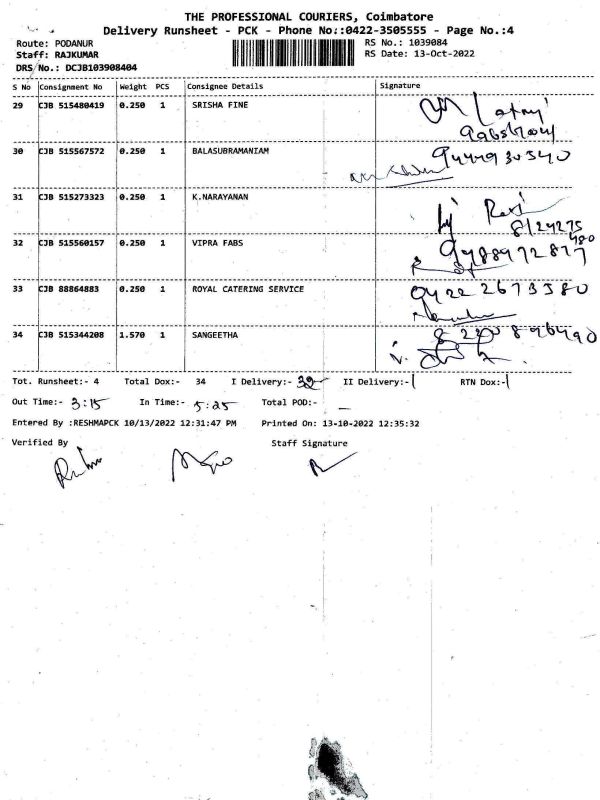 THE PROFESSIONAL COURIERS, Coimbatore
Delivery Runsheet - PCK - Phone No.:0422-3505555 - Page No.:4
Route: PODANUR
Staff: RAJKUMAR
DRS No.: DCJB103908404
RS No.: 1039084
RS Date: 13-Oct-2022
S No Consignment No Weight PCS Consignee Details Signature
29 CJB 515480419 0.250 1 SRISHA FINE
30 CJB 515567572 0.250 1 BALASUBRAMANIAM
31 CJB 515273323 0.250 1 K.NARAYANAN
32 CJB 515560157 0.250 1 VIPRA FABS
33 CJB 88864883 0.250 1 ROYAL CATERING SERVICE 0422 2673580
34 CJB 515344208 1.570 1 SANGEETHA
Tot. Runsheet:- 4 Total Dox:- 34 I Delivery:- 32 II Delivery:- RTN Dox:-
Out Time:- 3:15 In Time:- 5:25 Total POD:-
Entered By :RESHMAPCK 10/13/2022 12:31:47 PM Printed On: 13-10-2022 12:35:32
Verified By Staff Signature